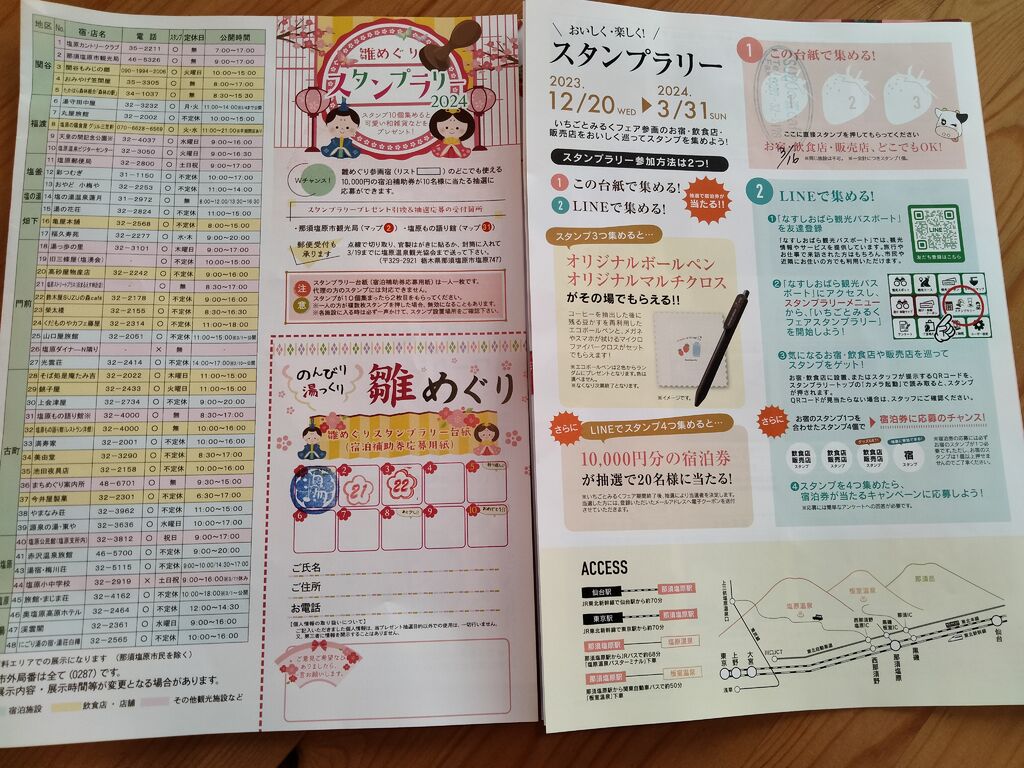 地区 No. 宿・店名 電話 スタンプ 定休日 公開時間
関谷
1 塩原カントリークラブ 35-2211 ○ 無 7:00〜17:00
2 那須塩原市観光局 46-5326 ○ 無 9:00〜17:00
3 関谷もみじの郷 090-1994-2006 ○ 火曜日 10:00〜15:00
4 おみやげ笠間屋 35-3305 ○ 無 8:00〜17:00
5 34-1037 ○ 無 8:30〜15:30
福渡
6 湯守田中屋 32-3232 ○ 月・火
7 丸屋旅館 32-2002 ○ 不定休 10:00〜15:00
8 070-6628-6569 ○ 火・水
9 天皇の間記念公園 32-4037 ○ 水曜日 9:00〜16:00
10 塩原温泉ビジターセンター 32-3050 ○ 火曜日 9:00〜16:30
11 塩原郵便局 32-2800 ○ 土日祝 9:00〜17:00
塩釜
12 彩つむぎ 31-1150 ○ 不定休 10:00〜17:00
13 おやど 小梅や 32-2253 ○ 不定休 11:00〜14:00
塩の湯
14 塩の湯温泉蓮月 31-2972 ○ 無
畑下
15 湯の花荘 32-2824 ○ 不定休 11:00〜15:00
16 亀屋本舗 32-2568 ○ 不定休 8:00〜15:00
17 福久寿苑 32-2277 ○ 水・木 9:00〜20:00
門前
18 湯っ歩の里 32-3101 ○ 木曜日 9:00〜17:00
19 旧三條屋(塩湧舎) ○ 不定休 9:00〜15:30
20 高砂屋物産店 32-2242 ○ 不定休 9:00〜16:00
21 ○ 不定休 9:00〜15:00
22 鈴木屋SUZUの森café ○ 不定休 10:00〜17:00
23 榮太楼 32-2155 ○ 不定休 9:00〜16:30
24 くだものやカフェ藤屋 32-2314 ○ 不定休 11:00〜18:00
25 山口屋旅館 32-2061 ○ 不定休
26 塩原ダイナー㏌隣り × 無
27 光雲荘 32-2414 ○ 不定休
古町
28 そば処是庵たみ吉 32-2022 ○ 木曜日 11:00〜15:00
29 銚子屋 32-2433 ○ 無 11:00〜15:30
30 上会津屋 32-2734 ○ 不定休 9:00〜17:00
31 塩原もの語り館※ 32-4000 ○ 無 8:30〜17:00
32 32-4000 ○ 無 8:30〜17:00
33 満寿家 32-2001 ○ 不定休 10:00〜17:00
34 美由堂 32-3290 ○ 不定休 8:30〜17:00
35 池田夜具店 32-2158 ○ 不定休 10:00〜16:00
36 まちめぐり案内所 48-6701 ○ 無 9:00〜15:30
37 今井屋製菓 32-2301 ○ 不定休 6:30〜17:00
38 やまなみ荘 32-3962 ○ 不定休 11:00〜15:00
39 源泉の湯・東や 32-3636 ○ 水曜日 10:00〜17:00
40 塩原公民館(市塩原支所内) 32-3812 ○ 祝日 9:00〜17:00
41 赤沢温泉旅館 46-5700 ○ 不定休 9:00〜20:00
42 湯宿・梅川荘 32-5115 ○ 不定休
43 湯荘白樺
44 塩原小中学校 32-2919 × 土日祝
45 旅館・まじま荘 32-4162 ○ 不定休
46 奥塩原高原ホテル 32-2464 ○ 不定休 12:00〜14:30
47 渓雲閣 32-2361 ○ 水曜日 9:00〜17:00
48 にごり湯の宿・湯荘白樺 32-2565 ○ 不定休 10:00〜17:00
料エリアでの展示になります(那須塩原市民を除く)
市外局番は全て(0287)です。
展示内容・展示時間等が変更となる場合があります。
宿泊施設 飲食店・店舗 その他観光施設など
雛めぐり
スタンプラリー
2024
スタンプ10個集めると
可愛い和雑貨などを
プレゼント!
Wチャンス!
雛めぐり参画宿(リスト )のどこでも使える
10,000円の宿泊補助券が10名様に当たる抽選に
応募ができます。
スタンプラリープレゼント引換&抽選応募の受付箇所
・那須塩原市観光局(マップ 2)・塩原もの語り館(マップ 31)
郵便受付も
承ります
点線で切り取り、官製はがきに貼るか、封筒に入れて
3/19までに塩原温泉観光協会まで送って下さい。
(〒329-2921 栃木県那須塩原市塩原747)
注意
スタンプラリー台紙(宿泊補助券応募用紙)は一人一枚です。
代理の方のスタンプには対応できません。
スタンプが10個集まったら2枚目をもらってください。
※一人の方が複数枚スタンプを押した場合、無効になることもあります。
※各施設に入る時は必ず一声かけて、スタンプ設置場所をご確認下さい。
のんびり
湯っくり
雛めぐり
雛めぐりスタンプラリー台紙
(宿泊補助券応募用紙)
1 2 3 4 5
21 22
6 7 8 9 10
ご氏名
ご住所
お電話
【個人情報の取り扱いについて】
ご記入いただきました個人情報は、当プレゼント抽選目的以外での使用は、一切行いません。
又、第三者に情報を開示することはありません。
ご意見ご希望など
ありましたら、一
言お願いします。
おいしく・楽しく!
スタンプラリー
2023. 2024.
12/20 WED ▶ 3/31 SUN
いちごとみるくフェア参画のお宿・飲食店・
販売店をおいしく巡ってスタンプを集めよう!
スタンプラリー参加方法は2つ!
1 この台紙で集める!
2 LINEで集める!
抽選で宿泊券が
当たる!!
スタンプ3つ集めると…
オリジナルボールペン
オリジナルマルチクロス
がその場でもらえる!!
コーヒーを抽出した後に
残る豆かすを再利用した
エコボールペンと、メガネ
やスマホが拭けるマイクロ
ファイバークロスがセット
でもらえます!
※エコボールペンは2色からラン
ダムにプレゼントとなります。色は
選べません。
※なくなり次第終了となります。
※イメージです。
さらに
LINEでスタンプ4つ集めると…
10,000円分の宿泊券
が抽選で20名様に当たる!
※いちごとみるくフェア期間終了後、抽選により当選者を決定します。
当選した方には、登録いただいたメールアドレスへ電子クーポンを送付
させていただきます。
1 この台紙で集める!
1 2 3
3/16
ここに直接スタンプを押してもらってください
お宿・飲食店・販売店、どこでもOK!
※同じ施設は不可。 ※一会計につきスタンプ1個。
2 LINEで集める!
1 「なすしおばら観光パスポート」
を友達登録
「なすしおばら観光パスポート」では、観光
情報やサービスを提供しています。旅行や
お仕事で来訪される方はもちろん、市民や
近隣にお住いの方でも利用いただけます。
LINE
友だち登録はこちら
2 「なすしおばら観光パス
ポート」にアクセスし、
スタンプラリーメニュー
から、「いちごとみるく
フェアスタンプラリー」
を開始しよう!
3 気になるお宿・飲食店や販売店を巡って
スタンプをゲット!
お宿・飲食店に設置、またはスタッフが提示するQRコードを、
スタンプラリートップの「カメラ起動」で読み取ると、スタンプ
が押されます。
QRコードが見当たらない場合は、スタッフにご確認ください。
さらに
お宿のスタンプ1つを
合わせたスタンプ4個で ▶ 宿泊券に応募のチャンス!
飲食店 販売店 スタンプ
飲食店 販売店 スタンプ
飲食店 販売店 スタンプ
宿 スタンプ
※宿泊券の応募には必ず
お宿のスタンプが1つ必
要です。ただし、お宿のス
タンプは1個以上押せませ
んのでご了承ください。
4 スタンプを4つ集めたら、
宿泊券が当たるキャンペーンに応募しよう!
※応募には簡単なアンケートへの回答が必要です。
ACCESS
仙台駅 那須塩原駅
JR東北新幹線で仙台駅から約70分
東京駅 那須塩原駅
JR東北新幹線で東京駅から約70分
那須塩原駅 塩原温泉
那須塩原駅からJRバスで約68分
(塩原温泉バスターミナル)下車
那須塩原駅 板室温泉
那須塩原駅から関東自動車バスで約50分
(板室温泉)下車
上三依塩原温泉口
塩原温泉
板室温泉
那須岳
西那須野塩原IC
黒磯板室IC
那須IC
東北自動車道
川口JCT
東京 上野 大宮 西那須野 那須塩原 黒磯 仙台
浅草
東北新幹線